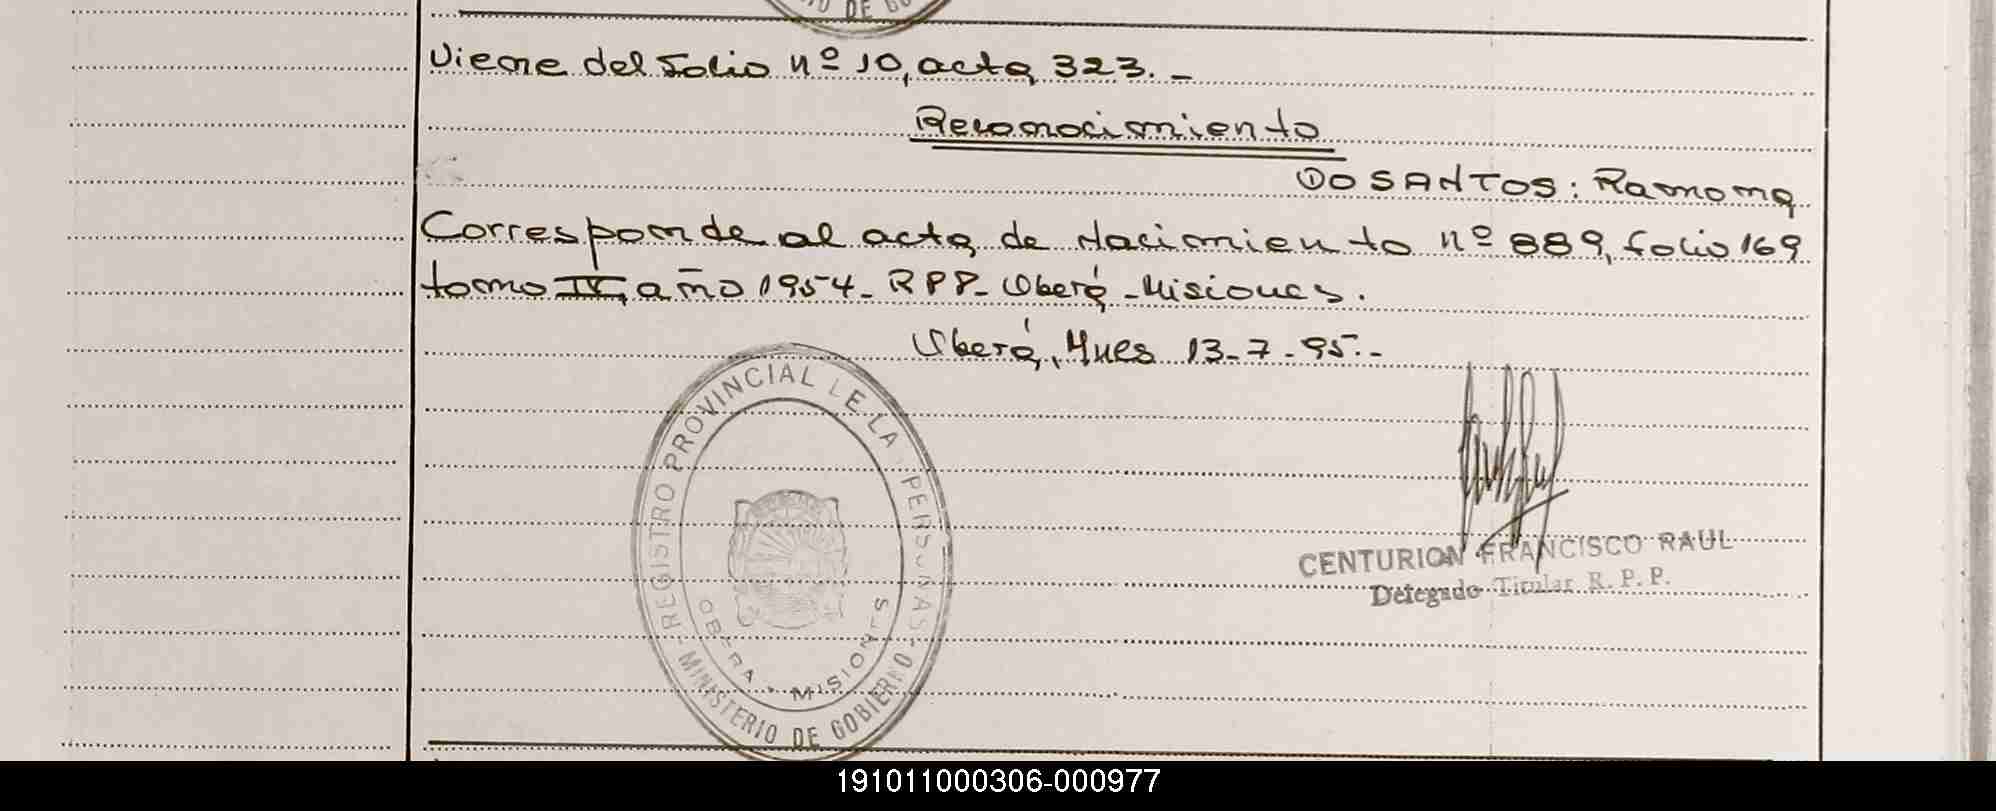 IO DE GO
Viene del Folio nº 10, acta 323.-
Reconocimiento
DO SANTOS: Ramona
Corresponde al acta de Nacimiento nº 889, folio 169
tomo IV, año 1954- RPP- Oberá -Misiones.
Oberá, Mnes 13-7-95.-
REGISTRO PROVINCIAL DE LAS PERSONAS - MINISTERIO DE GOBIERNO -
OBERA - MISIONES
CENTURION FRANCISCO RAUL
Delegado Titular R. P. P.
191011000306-000977